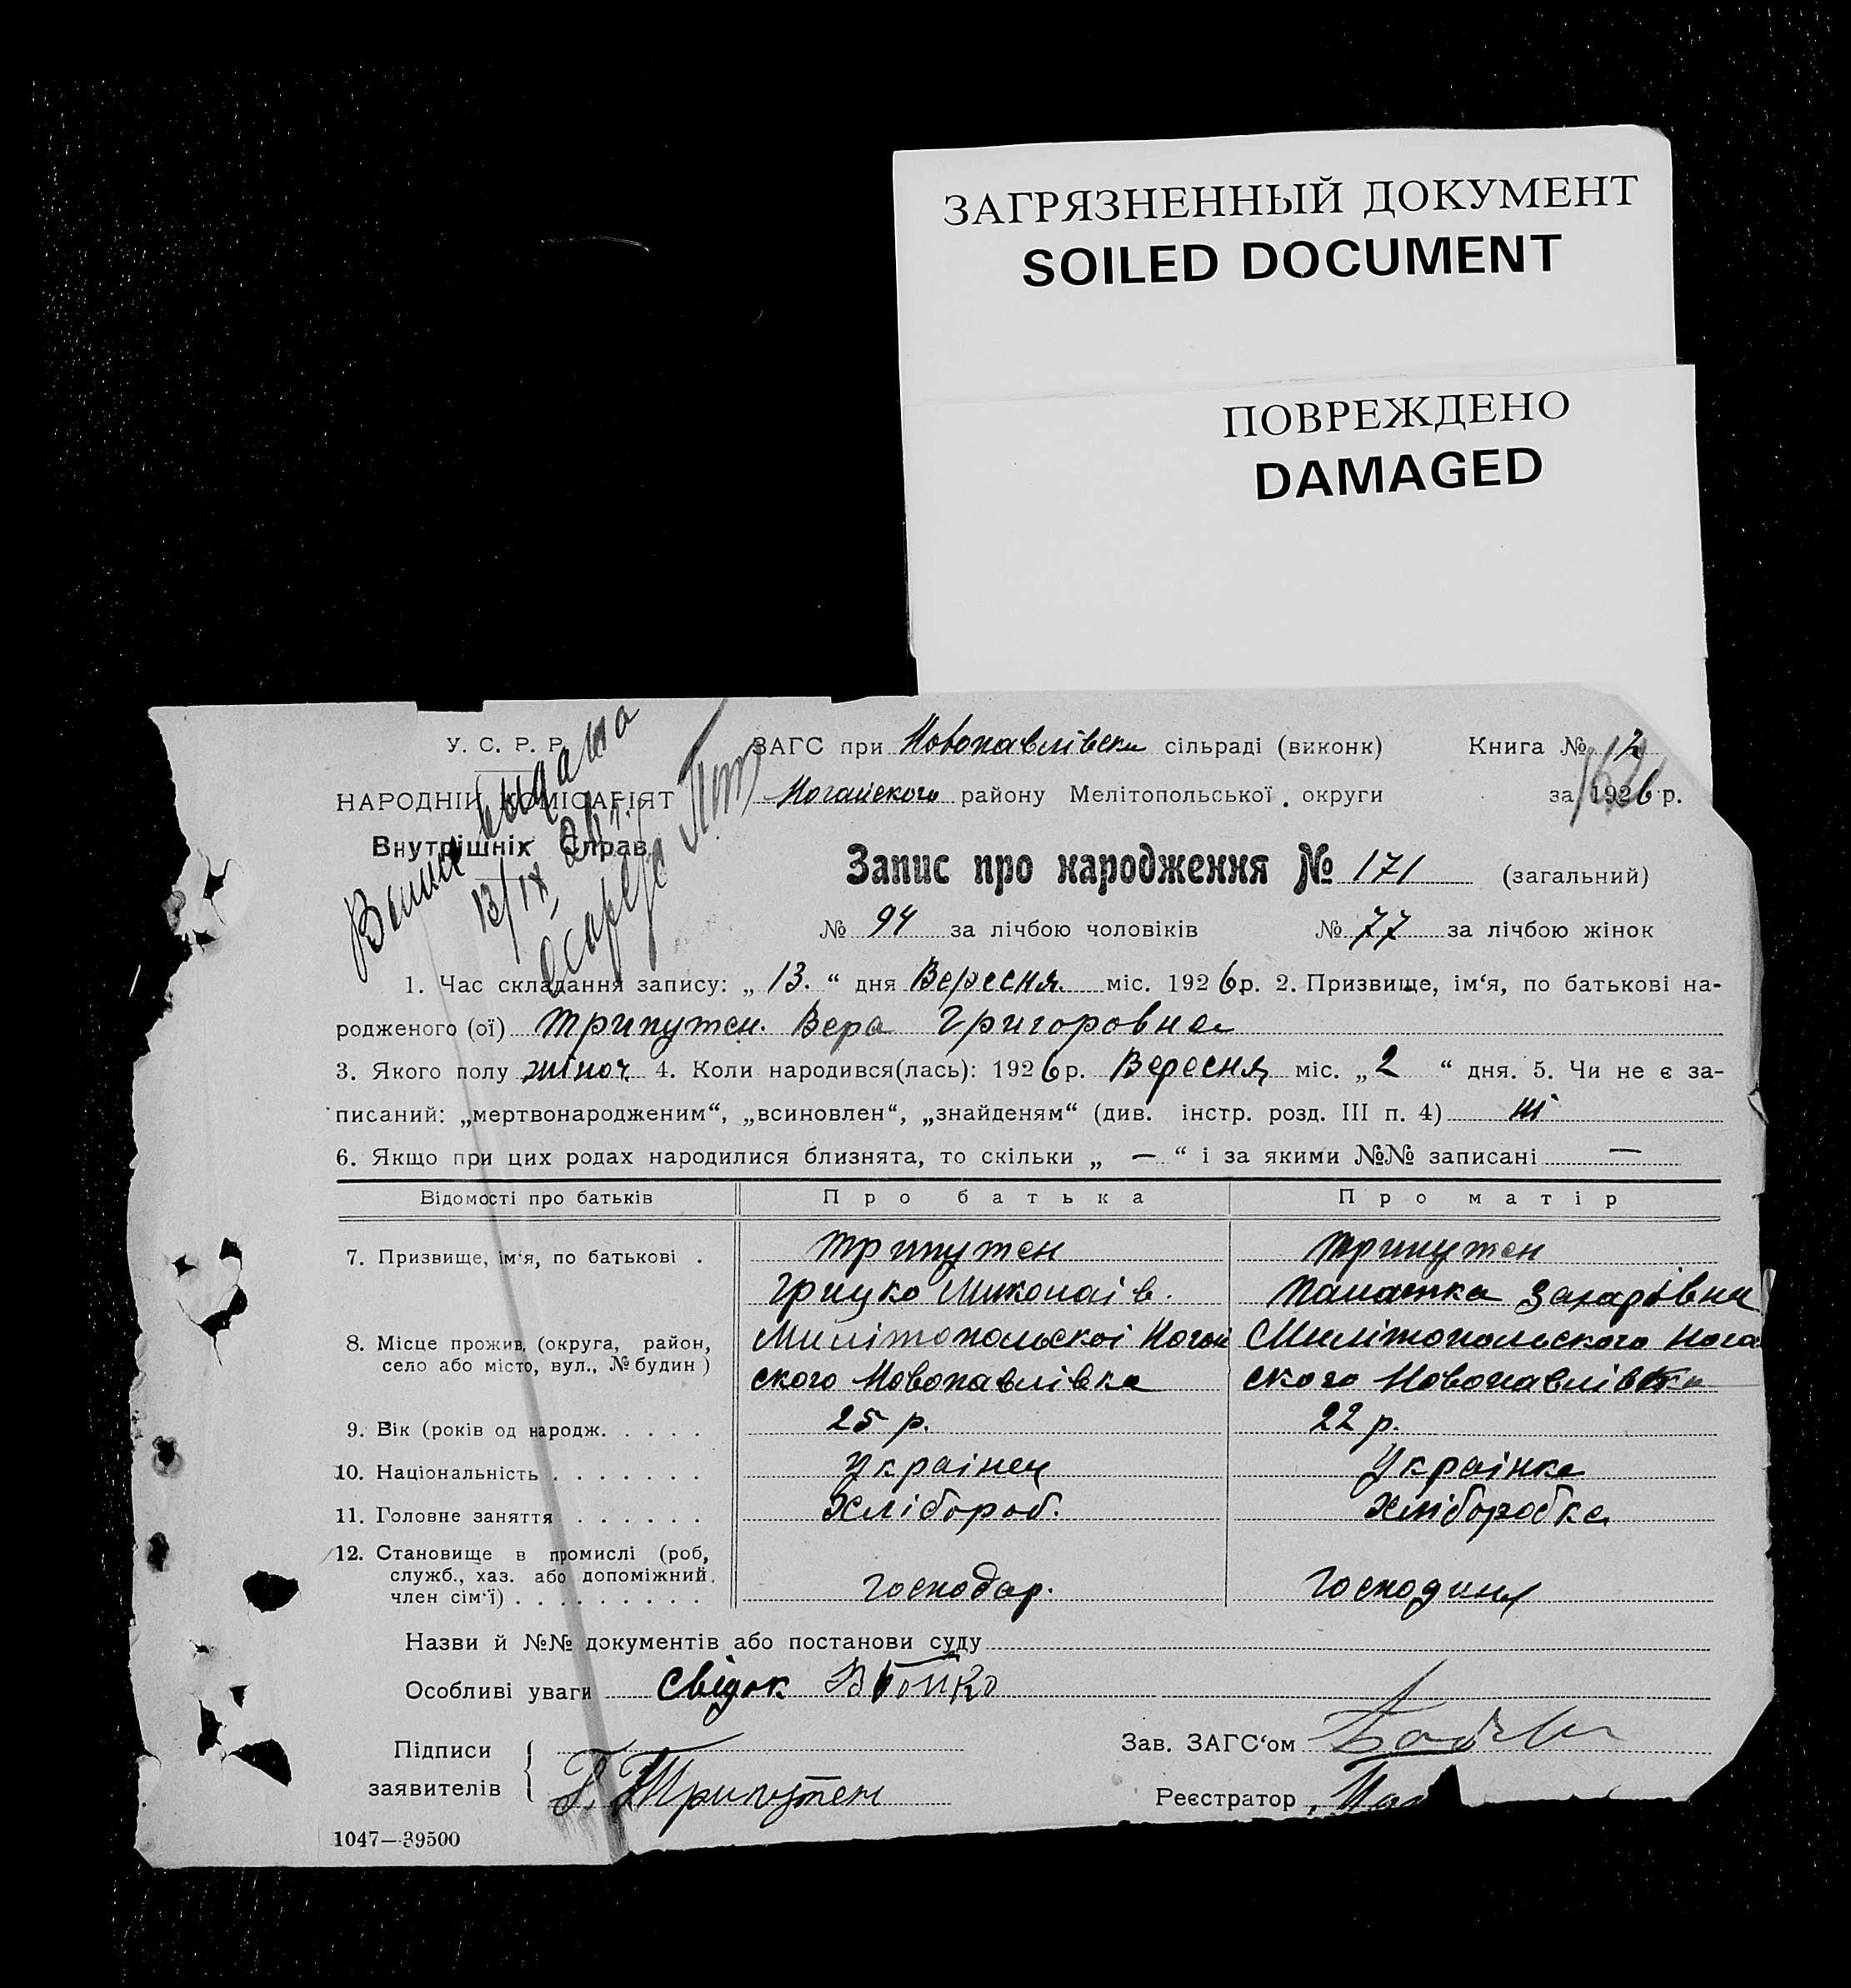 ЗАГРЯЗНЕННЫЙ ДОКУМЕНТ
SOILED DOCUMENT
ПОВРЕЖДЕНО
DAMAGED
У. С. Р. Р.
НАРОДНІЙ КОМІСАРІЯТ
Внутрішніх Справ
выдана
13/IX 26 г.
ЗАГС при Новопавлівськи сільраді (виконк) Книга № 2
Ногайського району Мелітопольської округи за 1926 р.
Запис про народження № 171 (загальний)
№ 94 за лічбою чоловіків № 77 за лічбою жінок
1. Час складання запису: „ 13. “ дня Вересня міс. 1926 р. 2. Призвище, ім‘я, по батькові на-
родженого (ої) Трипутен. Вера Григоровна
3. Якого полу жіноч 4. Коли народився(лась): 1926 р. Вересня міс. „ 2 “ дня. 5. Чи не є за-
писаний: „мертвонародженим“, „всиновлен“, „знайденям“ (див. інстр. розд. III п. 4) ні
6. Якщо при цих родах народилися близнята, то скільки „ — “ і за якими №№ записані —
Відомості про батьків Про батька Про матір
7. Призвище, ім‘я, по батькові . Трипутен Трипутен
Грицко Миколаів. Палажка Захарівна
8. Місце прожив. (округа, район, Милітопольскоі Ногай Милітопольского Нога
село або місто, вул., № будин ) ского Новопавлівка ского Новопавлівка
9. Вік (років од народж. . . . . 25 р. 22 р.
10. Національність . . . . . . . Украінец Украінка
11. Головне заняття . . . . . . Хлібороб. Хліборобка
12. Становище в промислі (роб,
служб., хаз. або допоміжний. господар. господиня
член сім‘ї) . . . . . . . . .
Назви й №№ документів або постанови суду
Особливі уваги Свідок Бойко
Підписи
заявителів Г. Трипутен
Зав. ЗАГС‘ом
Реєстратор
1047—39500